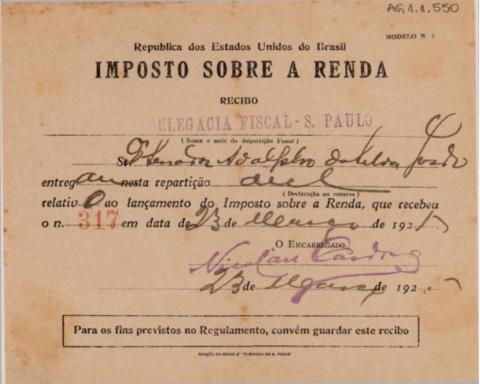 AG.1.1.550
MODELO N. 7
Republica dos Estados Unidos do Brasil
IMPOSTO SOBRE A RENDA
RECIBO
ELEGACIA FISCAL - S. PAULO
(Nome e séde da Repartição Fiscal)
Sr. Senador Adolpho da Silva Gordo
entregou nesta repartição decl
(Declaração ou recurso)
relativo ao lançamento do Imposto sobre a Renda, que recebeu
o n. 317 em data de 23 de Março 192
O ENCARREGADO
23 de Março de 192
Para os fins previstos no Regulamento, convém guardar este recibo
SECÇÃO DE OBRAS D' "O ESTADO DE S. PAULO"